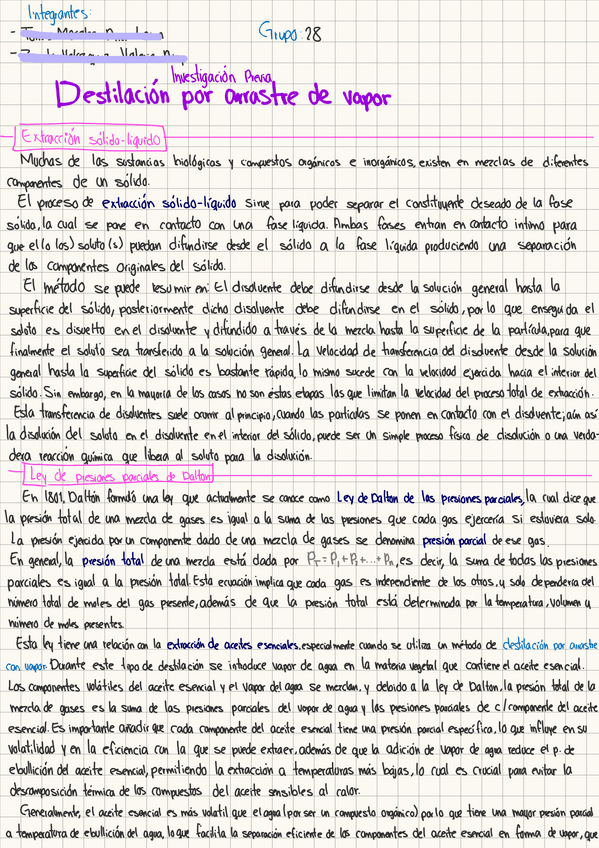 Integrantes:
Grupo: 28
Investigación Previa
Destilación por arrastre de vapor
Extracción sólido-líquido
Muchas de las sustancias biológicas y compuestos orgánicos e inorgánicos, existen en mezclas de diferentes
componentes de un sólido.
El proceso de extracción sólido-líquido sirve para poder separar el constituyente deseado de la fase
sólida, la cual se pone en contacto con una fase líquida. Ambas fases entran en contacto intimo para
que el (o los) soluto (s) puedan difundirse desde el sólido a la fase líquida produciendo una separación
de los componentes originales del sólido.
El método se puede resumir en: El disolvente debe difundirse desde la solución general hasta la
superficie del sólido, posteriormente dicho disolvente debe difundirse en el sólido, por lo que enseguida el
soluto es disuelto en el disolvente y difundido a través de la mezcla hasta la superficie de la partícula, para que
finalmente el soluto sea transferido a la solución general. La velocidad de transferencia del disolvente desde la solución
general hasta la superficie del sólido es bastante rápida, lo mismo sucede con la velocidad ejercida hacia el interior del
sólido. Sin embargo, en la mayoría de los casos no son éstas etapas las que limitan la velocidad del proceso total de extracción.
Esta transferencia de disolventes suele ocurrir al principio, cuando las partículas se ponen en contacto con el disolvente; aún así
la disolución del soluto en el disolvente en el interior del sólido, puede ser un simple proceso físico de disolución o una verda-
dera reacción química que libera al soluto para la disolución.
Ley de presiones parciales de Dalton
En 1801, Dalton formuló una ley que actualmente se conoce como Ley de Dalton de las presiones parciales, la cual dice que
la presión total de una mezcla de gases es igual a la suma de las presiones que cada gas ejercería si estuviera solo.
La presión ejercida por un componente dado de una mezcla de gases se denomina presión parcial de ese gas.
En general, la presión total de una mezcla está dada por P_T = P_1 + P_2 + ... + P_n, es decir, la suma de todas las presiones
parciales es igual a la presión total. Esta ecuación implica que cada gas es independiente de los otros, y solo dependería del
número total de moles del gas presente, además de que la presión total está determinada por la temperatura, volumen y
número de moles presentes.
Esta ley tiene una relación con la extracción de aceites esenciales, especialmente cuando se utiliza un método de destilación por arrastre
con vapor. Durante este tipo de destilación se introduce vapor de agua en la materia vegetal que contiene el aceite esencial.
Los componentes volátiles del aceite esencial y el vapor del agua se mezclan, y debido a la ley de Dalton, la presión total de la
mezcla de gases es la suma de las presiones parciales del vapor de agua y las presiones parciales de c/componente del aceite
esencial. Es importante añadir que cada componente del aceite esencial tiene una presión parcial específica, lo que influye en su
volatilidad y en la eficiencia con la que se puede extraer, además de que la adición de vapor de agua reduce el p. de
ebullición del aceite esencial, permitiendo la extracción a temperaturas más bajas, lo cual es crucial para evitar la
descomposición térmica de los compuestos del aceite sensibles al calor.
Generalmente, el aceite esencial es más volátil que el agua (por ser un compuesto orgánico) por lo que tiene una mayor presión parcial
a temperatura de ebullición del agua, lo que facilita la separación eficiente de los componentes del aceite esencial en forma de vapor, que